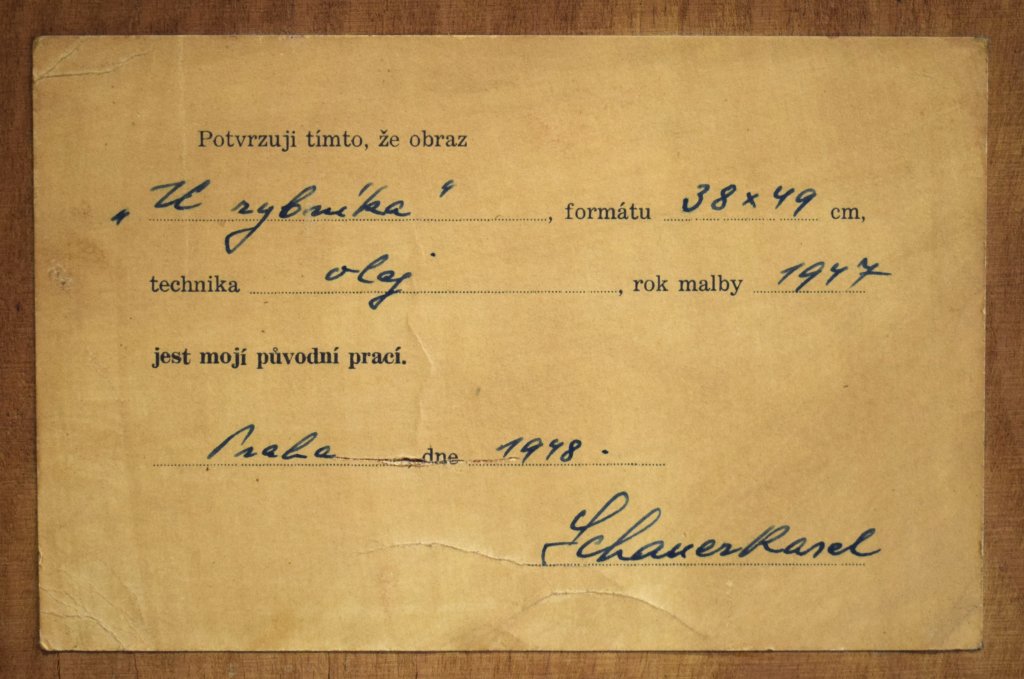 Potvrzuji tímto, že obraz
„U rybníka", formátu 38 x 49 cm,
technika olej, rok malby 1947
jest mojí původní prací.
Praha dne 1948.
Schauer Karel